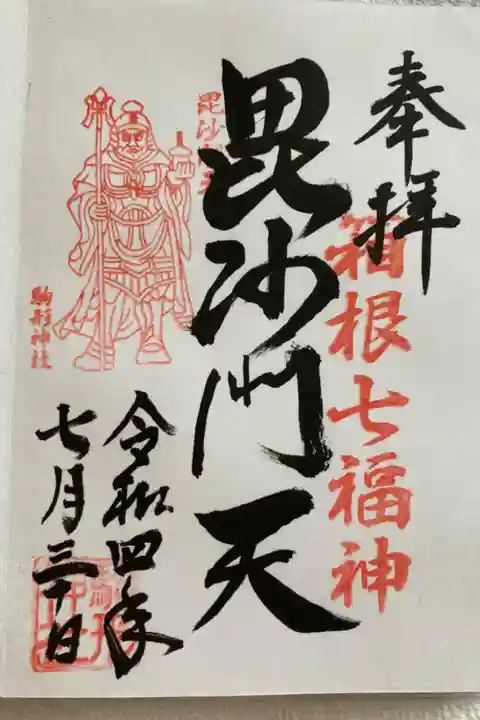 奉拝
箱根七福神
毘沙門天
毘沙門天
駒形神社
令和四年
七月三十日